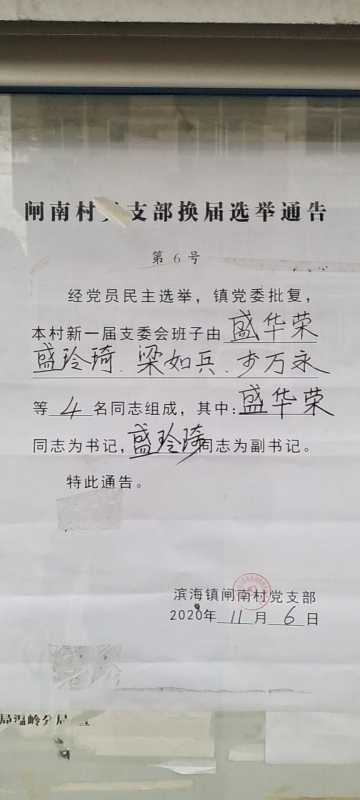 闸南村 支部换届选举通告
第 6 号
经党员民主选举，镇党委批复，
本村新一届支委会班子由 盛华荣
盛玲琦、梁如兵、 万永
等 4 名同志组成，其中:盛华荣
同志为书记，盛玲琦同志为副书记。
特此通告。
滨海镇闸南村党支部
2020年 11 月 6 日